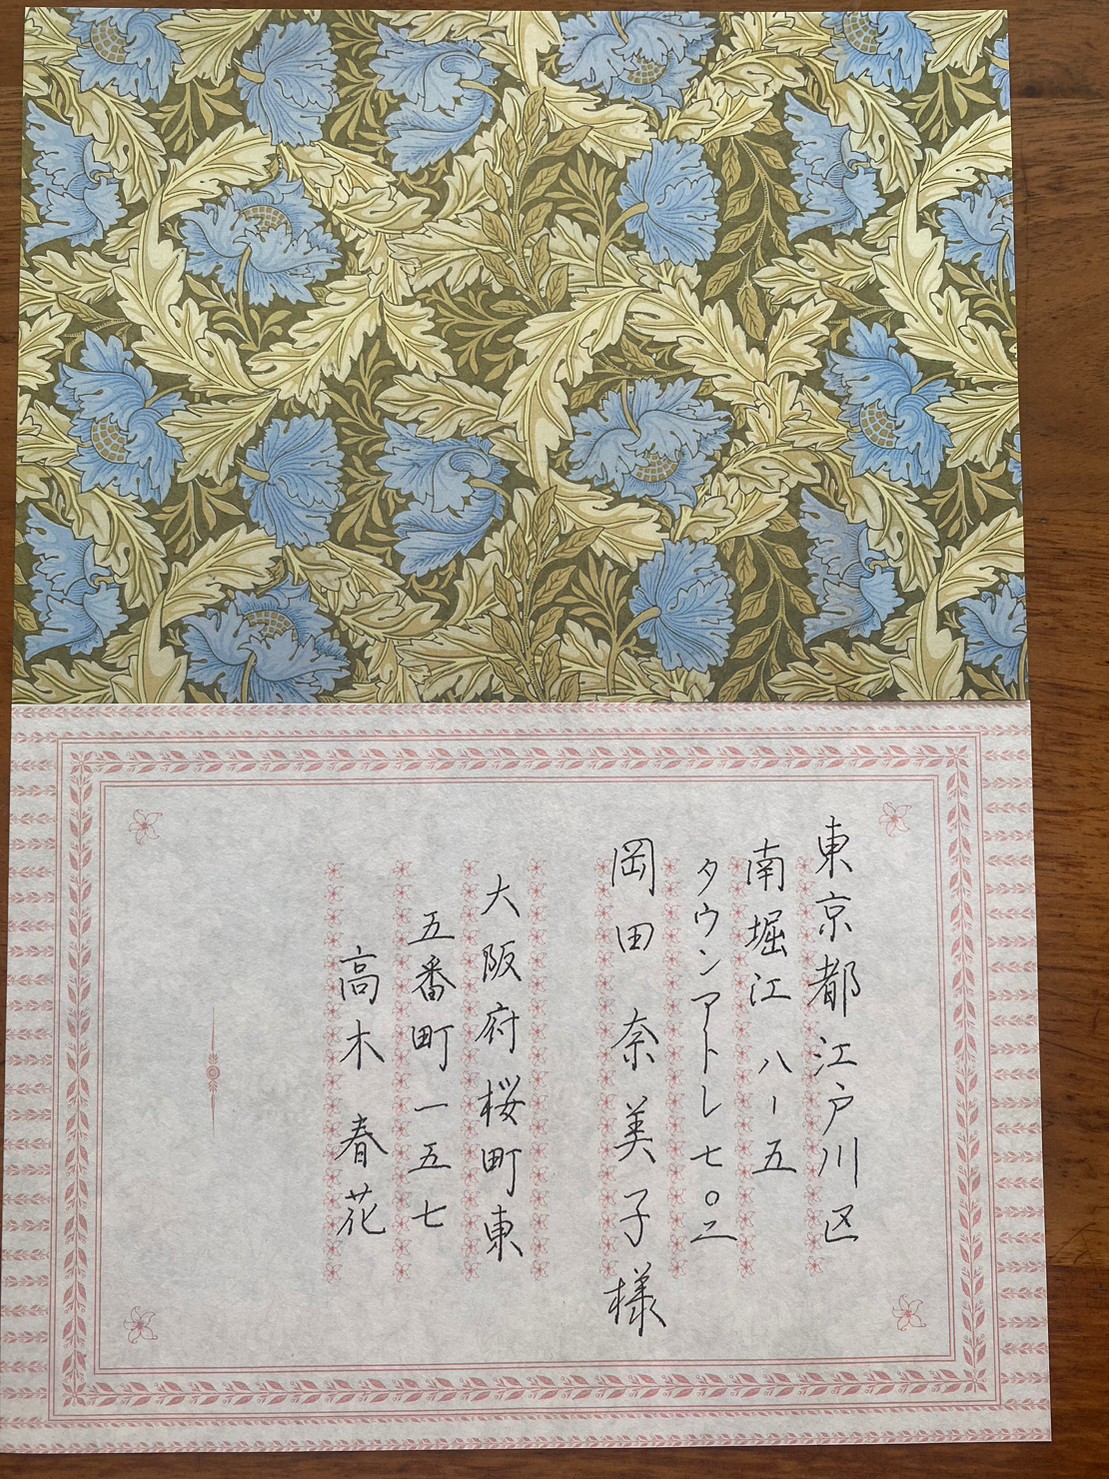 東京都江戸川区
南堀江 八-五
タウンアートレ七〇二
岡田 奈美子様
大阪府桜町東
五番町一五七
高木 春花